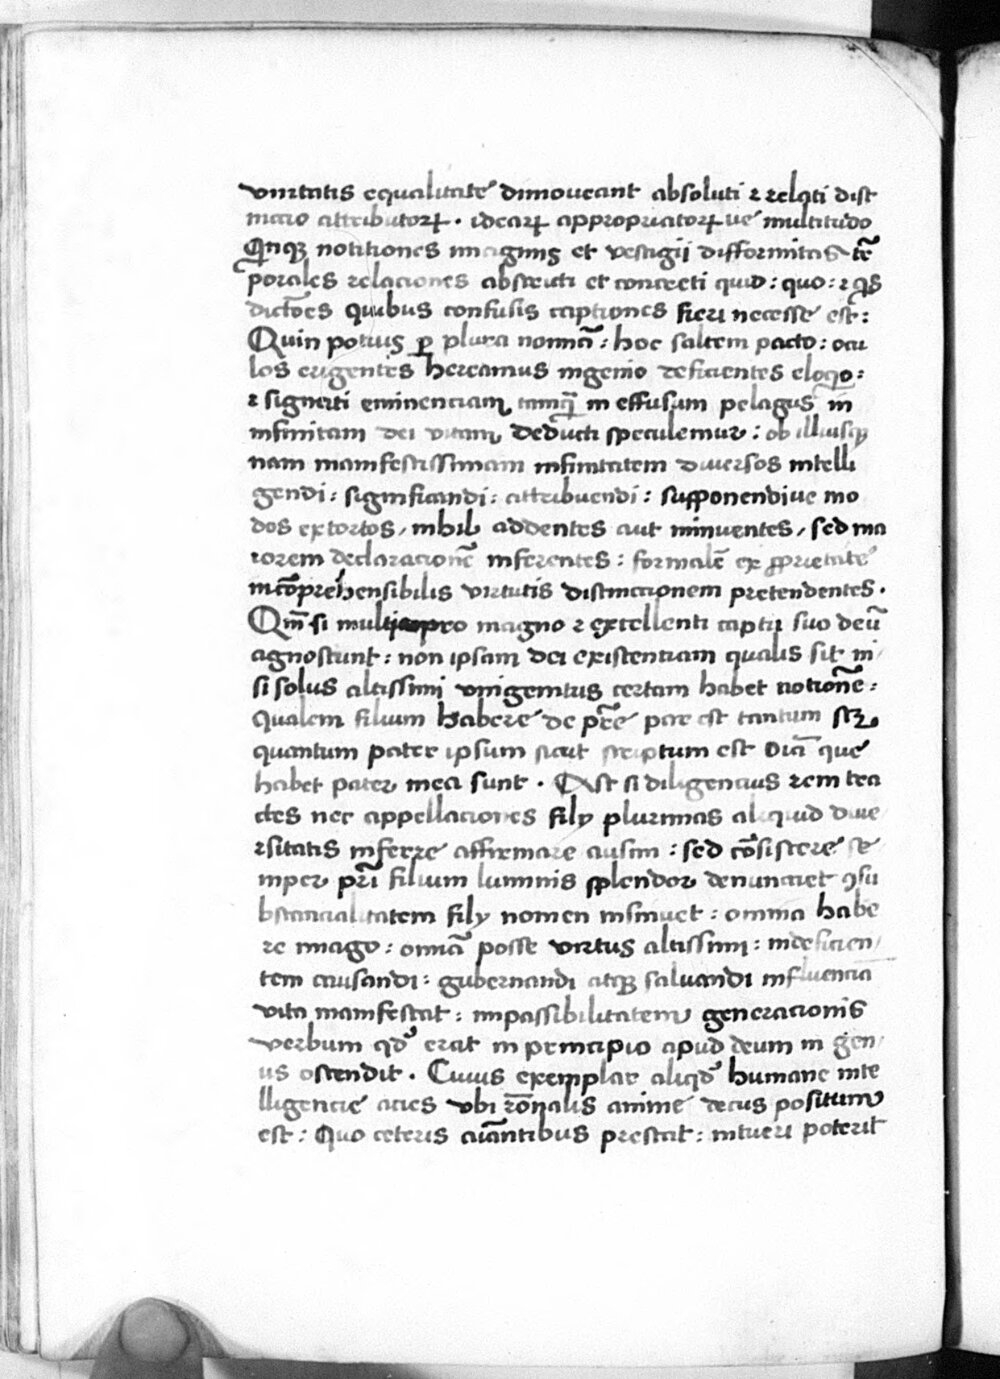 vnitatis equalitate dimoueant absoluti ⁊ relati dist
inctio attributoꝝ . ideaꝝ appropriatoꝝ ue multitudo
Quinqꝫ notitiones imaginis et vestigij difformitas tē
porales relaciones abstracti et concreti quid : quo : ⁊ qd̄
dictōes quibus confusis captiones fieri necesse est :
Quin potius ꝑ plura nomīa : hoc saltem pacto : ocu
los erigentes hereamus ingenio deficientes eloqio :
⁊ signati eminenciam tamqȝ in effusum pelagus in
infinitam dei vitam deducti speculemur : ob illiusqȝ
nam manifestissimam infinitatem diuersos intelli
gendi : significandi : attribuendi : supponendiue mo
dos extortos / nihil addentes aut minuentes / sed ma
iorem declaracionē inferentes : formalē ex ꝓprietate
incōprehensibilis virtutis distinctionem pretendentes .
Qm̄ si multi pro magno ⁊ excellenti captu suo deū
agnoscunt : non ipsam dei existentiam qualis sit ni
si solus altissimi vnigenitus certam habet notionē :
qualem filium habere de pr̄e par est tantum scꝫ
quantum pater ipsum sicut scriptum est Oīa que
habet pater mea sunt . Ast si diligencius rem trac
tes nec appellaciones filij plurimas aliquid diue
rsitatis inferre affirmare ausim : sed cōsistere se
mper pr̄i filium luminis splendor denunciet ꝯsu
bstancialitatem filij nomen insinuet : omnia habe
re imago : omīa posse virtus altissimi : indeficien
tem causandi : gubernandi atqꝫ saluandi influencia
vita manifestat : impassibilitatem generacionis
verbum qd̄ erat in principio apud deum in gen
us ostendit . Cuius exemplar aliqd̄ humane inte
lligencie acies vbi rōnalis anime decus positum
est : Quo ceteris aīantibus prestat : intueri poterit